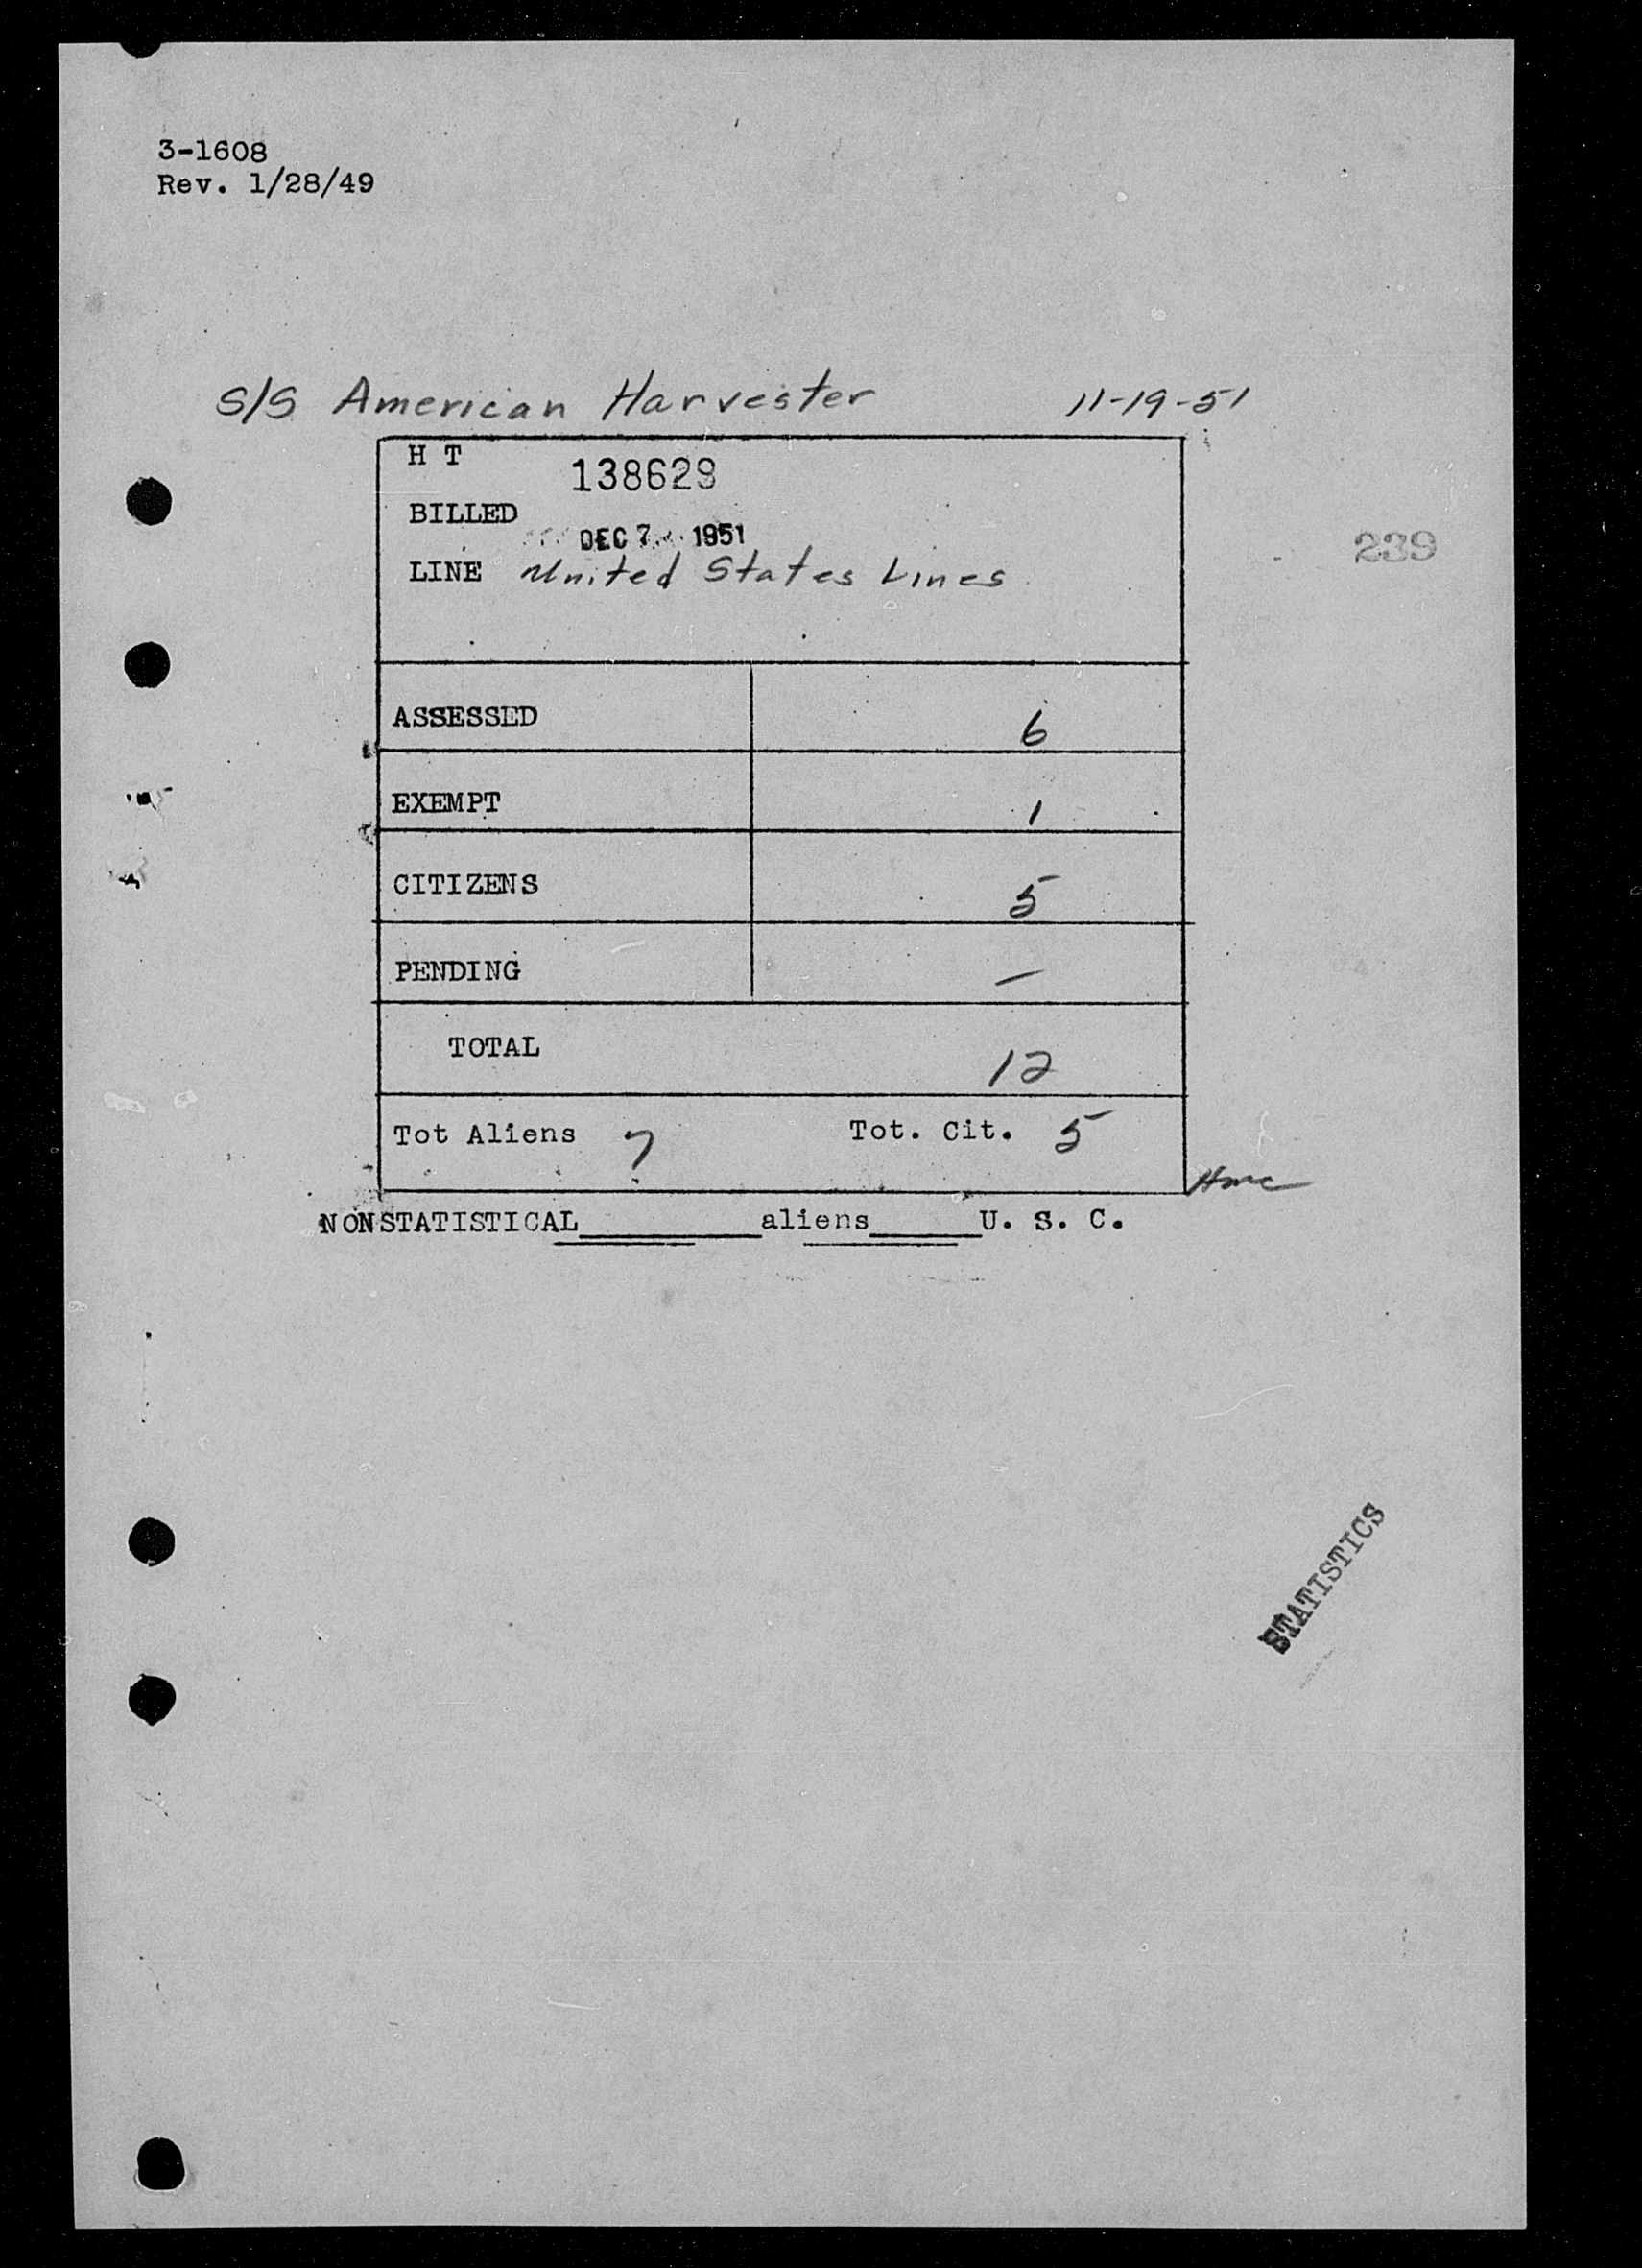 3-1608
Rev. 1/28/49
S/S American Harvester 11-19-51
H T 138629
BILLED
DEC 7 1951
LINE United States Lines
239
ASSESSED 6
EXEMPT 1
CITIZENS 5
PENDING —
TOTAL 12
Tot Aliens 7 Tot. Cit. 5
NONSTATISTICAL______aliens______U. S. C.
STATISTICS